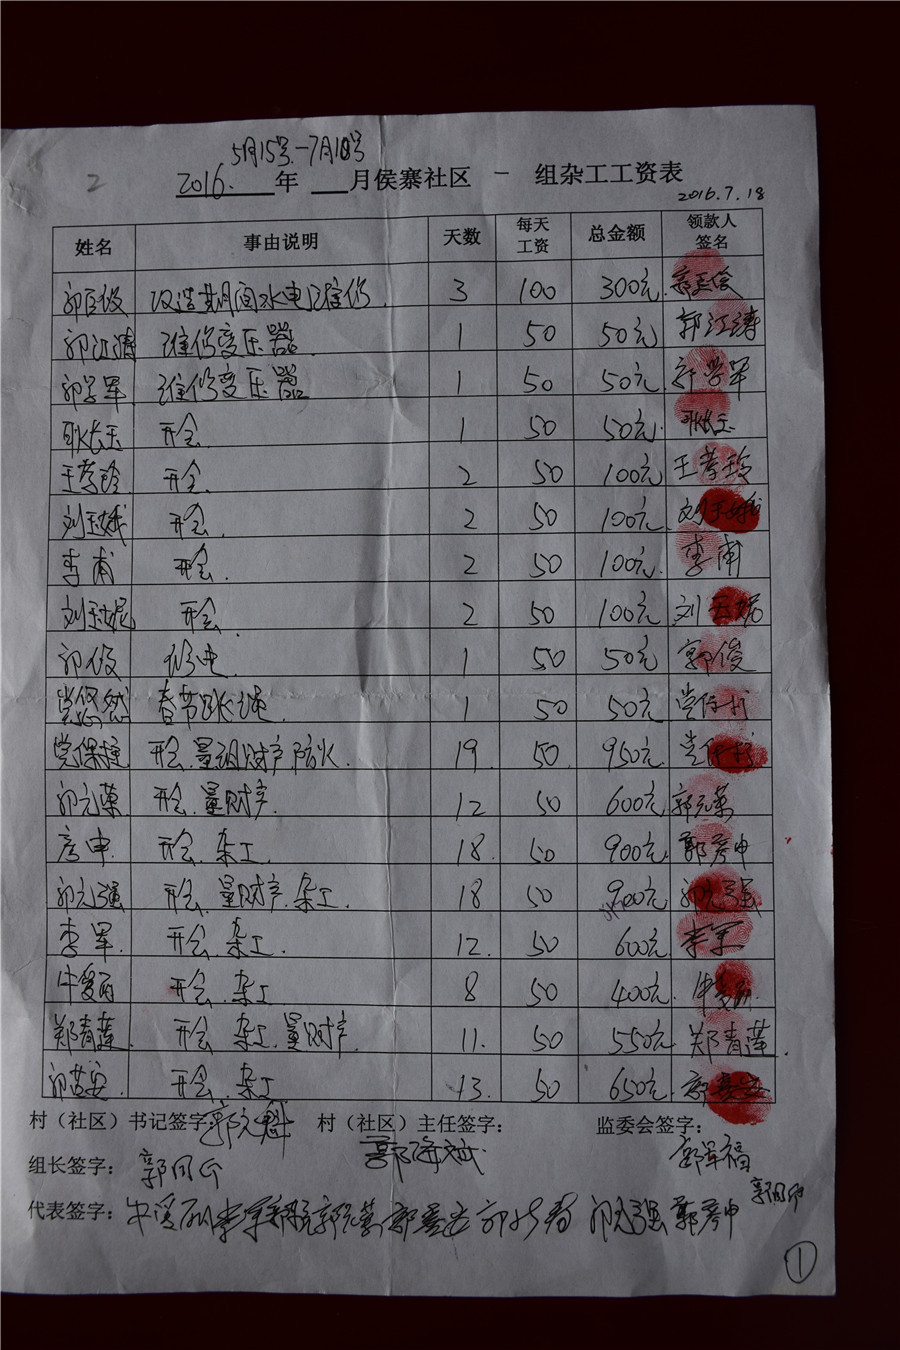 5月15号-7月18号
2
2016. 年 月侯寨社区 一 组杂工工资表
2016.7.18
姓名 事由说明 天数 每天工资 总金额 领款人签名
改造期间水电维修. 3 100 300元
郭江涛 维修变压器. 1 50 50元. 郭江涛
郭学军 维修变压器 1 50 50元. 郭学军
耿长玉 开会 1 50 50元. 耿长玉
王孝玲 开会. 2 50 100元 王孝玲
刘玉娥 开会. 2 50 100元. 刘玉娥
李甫 开会. 2 50 100元. 李甫
刘玉妮 开会. 2 50 100元. 刘玉妮
郭俊 修电 1 50 50元 郭俊
党悠然 春节跳绳. 1 50 50元 党保柱
党保柱 开会.量组财产防火. 19. 50. 950元. 党保柱
郭元荣. 开会.量财产. 12 50 600元 郭元荣
彦申. 开会.杂工. 18. 50 900元. 郭彦申
郭元强 开会.量财产.杂工. 18 50 900元 郭元强
李军. 开会.杂工. 12. 50 600元. 李军
牛爱 开会.杂工 8 50 400元. 牛爱
郑青莲. 开会 杂工.量财产. 11. 50 550元 郑青莲.
开会.杂工 13. 50 650元.
村（社区）书记签字: 郭元魁 村（社区）主任签字: 监委会签字:
郭军福
组长签字:
代表签字: 李军 郭元荣 郭元强 郭彦申
1